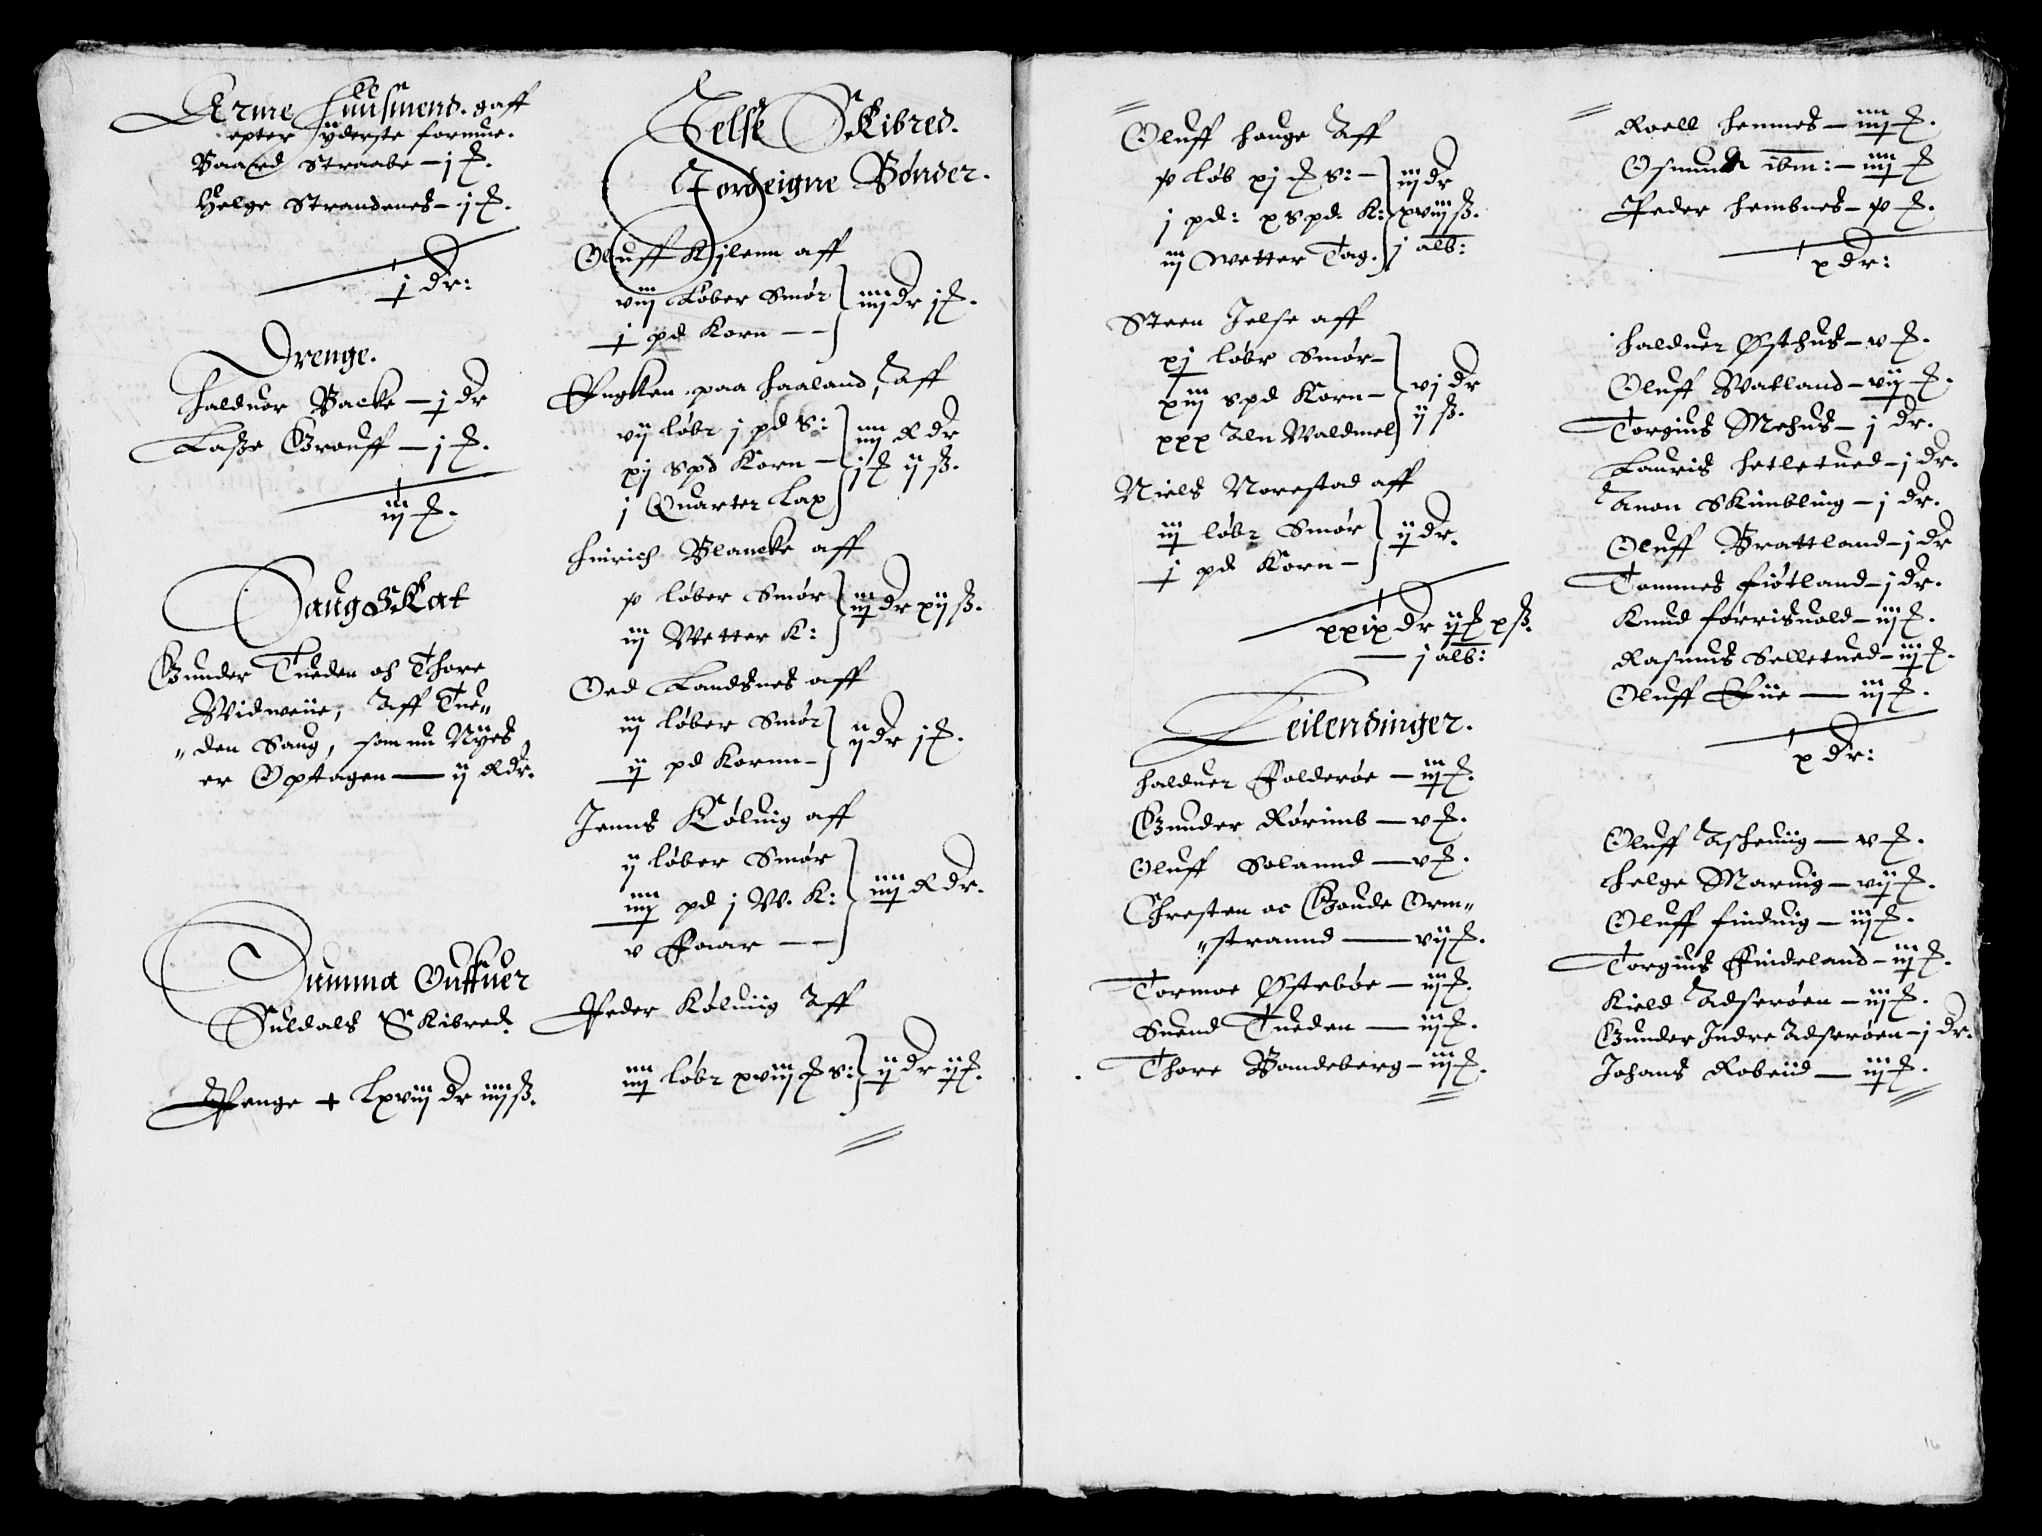 Arme Huusmend. gaff
epter ÿderste formue.
Baard Straabe – j ₻.
Helge Strandenes – j ₻.
j dr:
Drenge.
Halduor Backe – j dr
Laße Grouff – j ₻.
iij ₻.
Saug Skat
Gunder Tueden och Thore
Widweÿe, Aff Tue„
„den Saug, som nu Nÿes
er Optagen — ij Rdr.
Summa Outhuer
Suldals Skibred.
Penge + Lxviij dr iiij ß.
Jelse Skibred.
Jordeigne Bønder.
Oluff Kilenn aff
viij Løber Smør
j pd Korn – –
iiij dr j ₻.
paa Haaland, Aff
vij løbr j pd S:
xj spd Korn –
j Quarter Lax
iiij R dr
j ₻ ij ß.
Hinrich Blancke aff
x løber Smør
iij Wetter K:
iiij dr xij ß.
Oed Landsnes aff
iij løber Smør
ij pd Kornn –
ij dr j ₻.
Jenns Kølnig aff
ij løber Smør
iiij pd j W. K:
v Faar – –
iiij R dr.
Peder Kølniig Aff
iiij løbr xviij ₻ S:
ij dr ij ₻.
Oluff Hauge Aff
x løb xj ₻ S: –
j pd: x spd K:
iij Wetter Tag.
iij dr
xviij ß.
j alb:
Steen Jelse aff
xj løbr Smør –
xiij spd Korn –
xxx Aln Waldmel
vj dr
ij ß.
Niels Norestad aff
iij løbr Smør
j pd Korn –
ij dr.
xxix dr ij ₻ x ß.
— j alb:
Leilendinger.
Halduer Folderøe – iij ₻.
Gunder Rørimb – v ₻.
Oluff Solannd – v ₻.
Chresten oc Gaude Orm„
„strannd — vij ₻.
Tormoe Østebøe – iij ₻.
Suend Tueden — iij ₻.
Thore Bandeberg – iij ₻.
Roell Hemmes – iiij ₻.
Osmund ibm: – iiij ₻
Peder Hembnes – x ₻.
x dr:
Halduer Østhus – v ₻.
Oluff Watland – vij ₻.
Torgius Mehus – j dr.
Lauris Hetletued – j dr.
Anon Skimbling – j dr.
Oluff Brattland – j dr
Tommes Fiøtland – j dr.
Knud Førrisuold – iij ₻.
Rasmus Selletued – iij ₻.
Oluff Eiie — iij ₻.
x dr:
Oluff Ascheuiig — v ₻.
Helge Maruig – vij ₻.
Oluff Finduig – iij ₻.
Torgius Findeland – iij ₻.
Kield Adserøen – iij ₻.
Gunder Indre Adserøen – j dr.
Johans Robeiid — iij ₻.
16